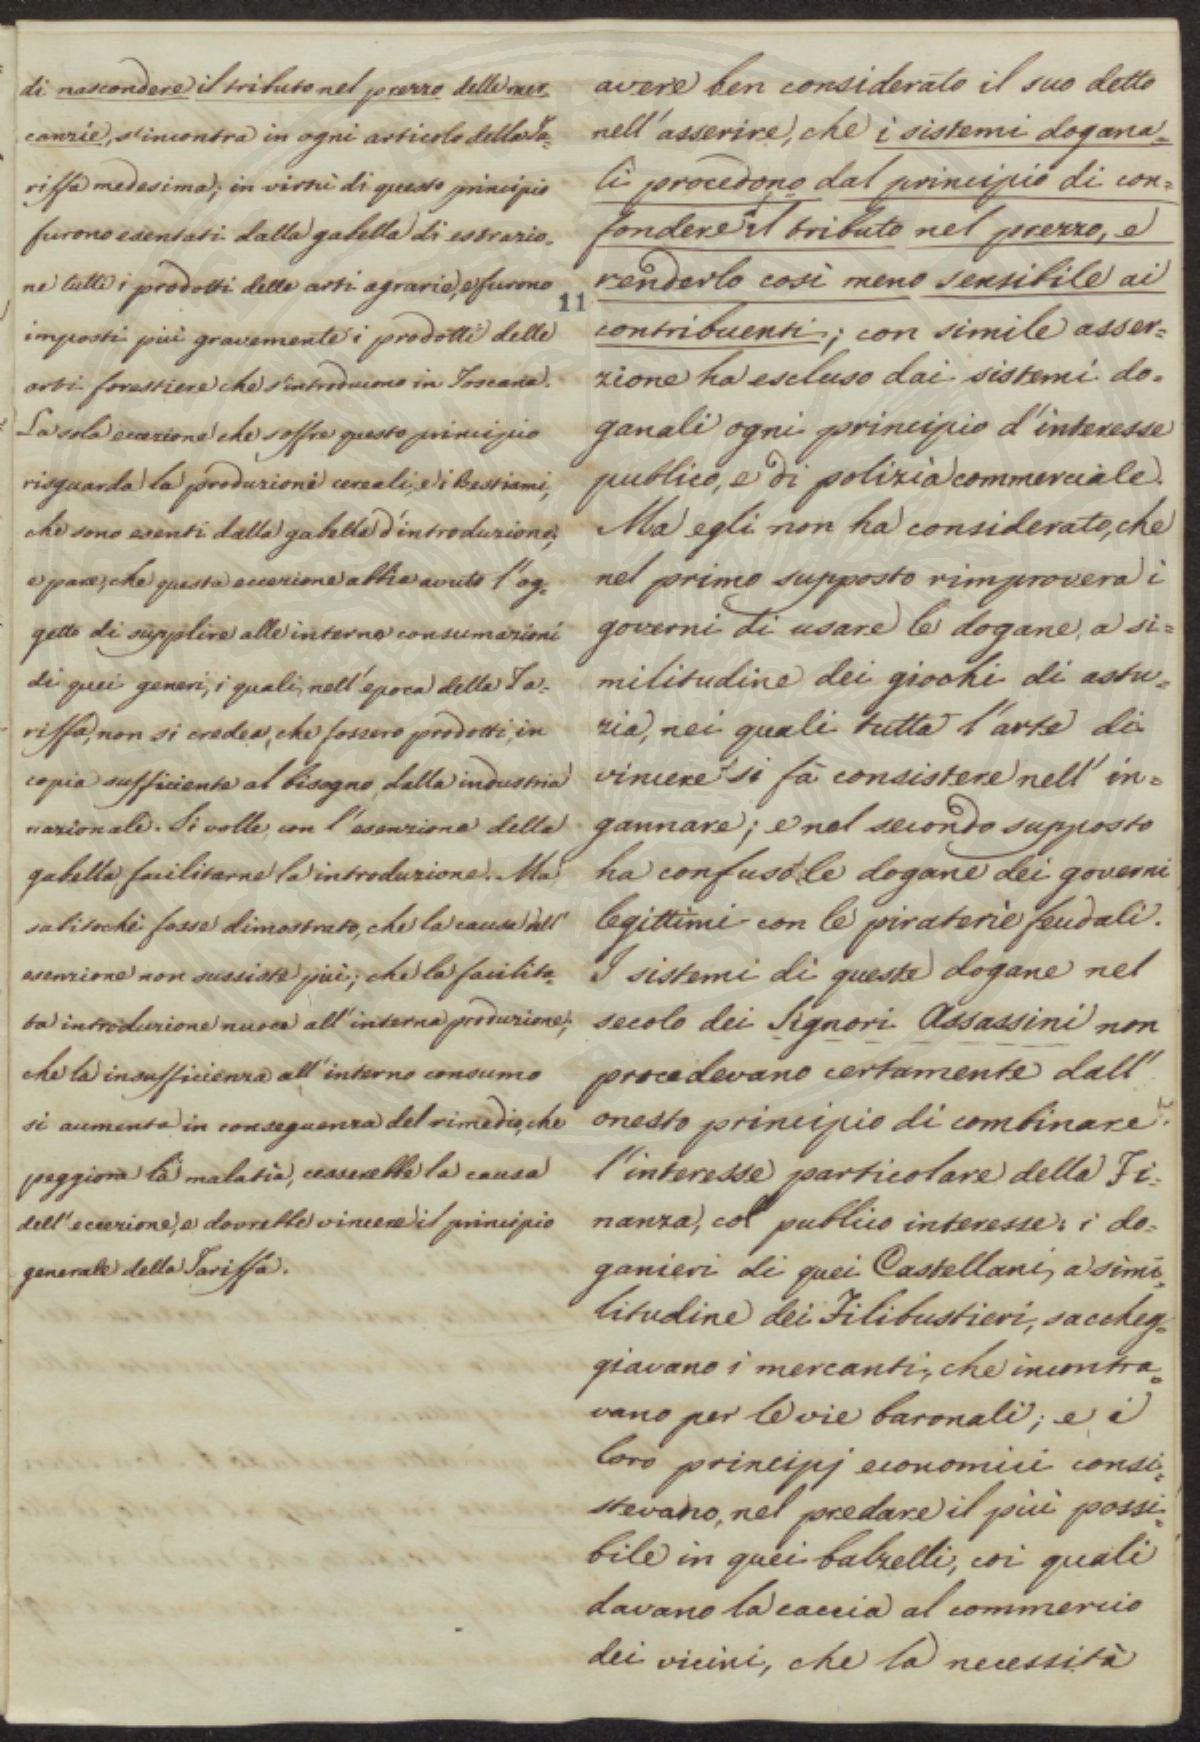 di nascondere il tributo nel prezzo delle mer-
canzie, s'incontra in ogni articolo della Ta-
riffa medesima; in virtù di questo principio
furono esentati dalla gabella di estrazio-
ne tutti i prodotti delle arti agrarie, e furono
imposti più gravemente i prodotti delle
arti forestiere che s'introducono in Toscana.
La sola eccezione che soffre questo principio
risguarda la produzioni cereali, e i Bestiami,
che sono esenti dalla gabella d'introduzione;
e pare, che questa eccezione abbia avuto l'og-
getto di supplire alle interne consumazioni
di quei generi, i quali, nell'epoca della Ta-
riffa, non si credea, che fossero prodotti, in
copia sufficiente al bisogno, dalla industria
nazionale. Si volle, con l'esenzione della
gabella facilitarne la introduzione. Ma,
subitochè fosse dimostrato, che la causa dell'
esenzione non sussiste più; che la facilita-
ta introduzione nuoce all'interna produzione;
che la insufficienza all'interno consumo
si aumenta in conseguenza del rimedio, che
peggiora la malatia, cesserebbe la causa
dell'eccezione, e dovrebbe vincere il principio
generale della Tariffa.
11
avere ben considerato il suo detto
nell'asserire, che i sistemi dogana-
li procedono dal principio di con-
fondere il tributo nel prezzo, e
renderlo così meno sensibile ai
contribuenti; con simile asser-
zione ha escluso dai sistemi do-
ganali ogni principio d'interesse
publico, e di polizia commerciale.
Ma egli non ha considerato, che
nel primo supposto rimprovera i
governi di usare le dogane, a si-
militudine dei giochi di astu-
zia, nei quali tutta l'arte di
vincere si fà consistere nell'in-
gannare; e nel secondo supposto
ha confuso le dogane dei governi
legittimi con le piraterie feudali.
I sistemi di queste dogane nel
secolo dei Signori Assassini non
procedevano certamente dall'
onesto principio di combinare
l'interesse particolare della Fi-
nanza, col publico interesse: i do-
ganieri di quei Castellani, a simi-
litudine dei Filibustieri, saccheg-
giavano i mercanti, che incontra-
vano per le vie baronali; e i
loro principj economici consi-
stevano, nel predare il più possi-
bile in quei balzelli, coi quali
davano la caccia al commercio
dei vicini, che la necessità